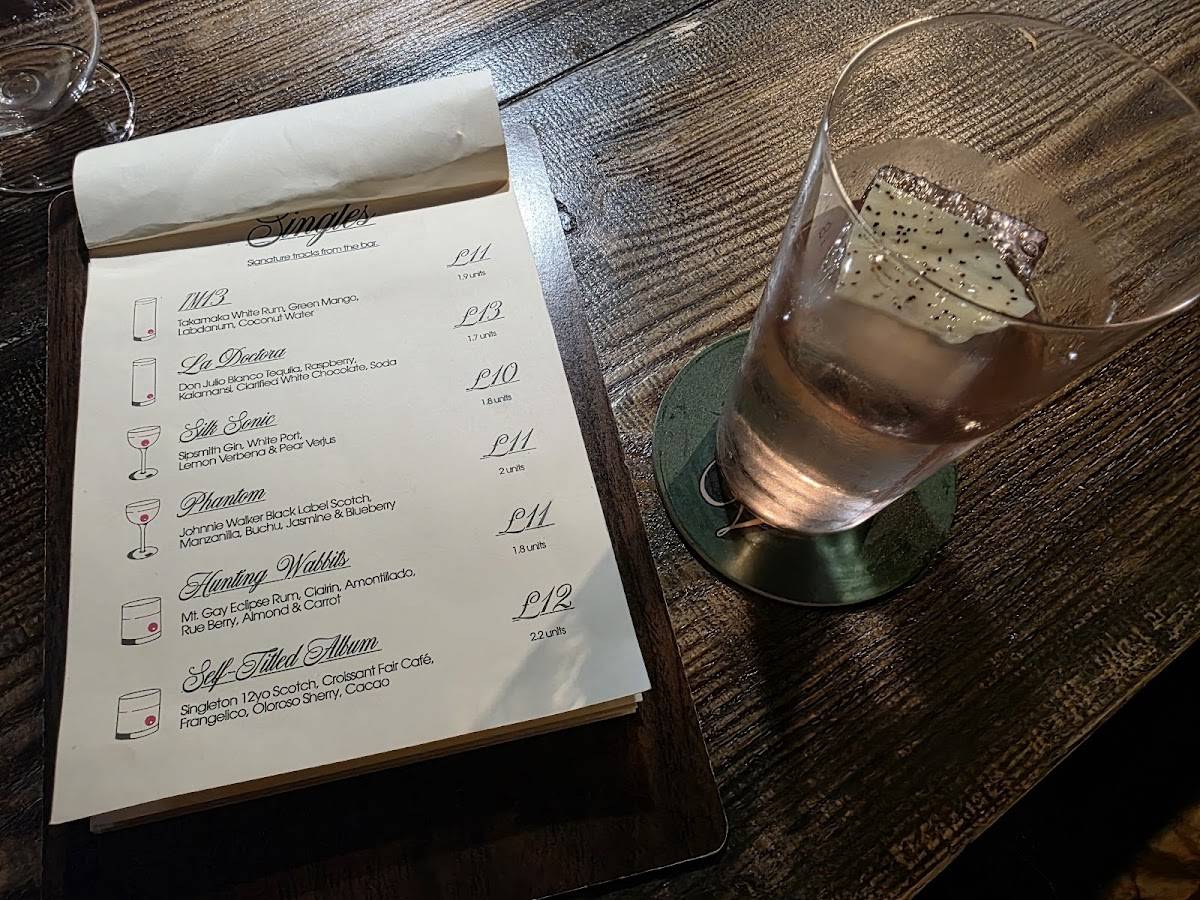 Singles
Signature tracks from the bar.
TM13
£11
Takamaka White Rum, Green Mango,
Labdanum, Coconut Water
1.9 units
La Doctora
£13
Don Julio Blanco Tequila, Raspberry,
Kalamansi, Clarified White Chocolate, Soda
1.7 units
Silk Sonic
£10
Sipsmith Gin, White Port,
Lemon Verbena & Pear Verjus
1.8 units
Phantom
£11
Johnnie Walker Black Label Scotch,
Manzanilla, Buchu, Jasmine & Blueberry
2 units
Hunting Wabbits
£11
Mt. Gay Eclipse Rum, Clairin, Amontillado,
Rue Berry, Almond & Carrot
1.8 units
Self-Titled Album
£12
Singleton 12yo Scotch, Croissant Fair Café,
Frangelico, Oloroso Sherry, Cacao
2.2 units